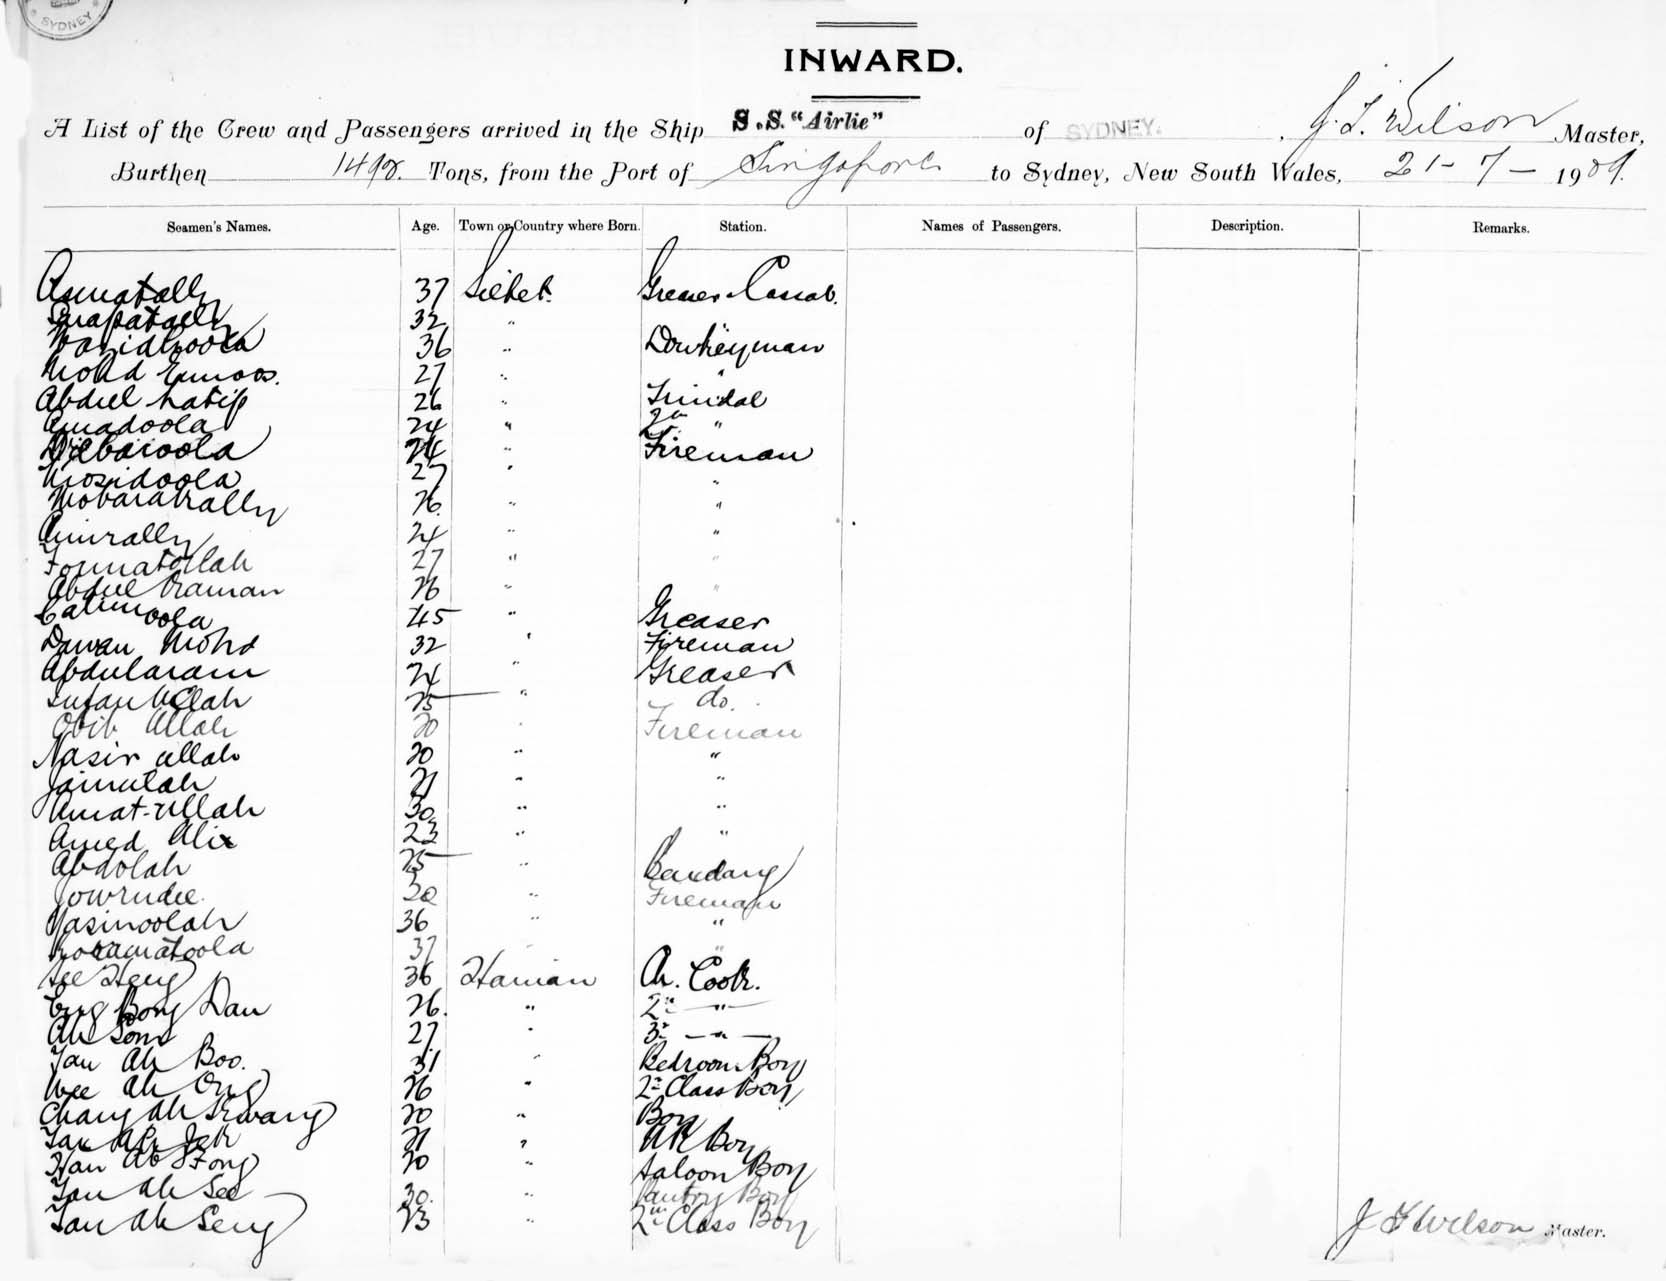 SYDNEY
INWARD.
A List of the Crew and Passengers arrived in the Ship S.S. "Airlie" of SYDNEY. , J. F. Wilson Master,
Burthen 1498. Tons, from the Port of Singapore to Sydney, New South Wales, 21-7- 1909.
Seamen's Names. Age. Town or Country where Born. Station. Names of Passengers. Description. Remarks.
Asmatally 37 Silhet. Greaser Cassab.
32 "
36 " Donkeyman
Mohd 27 " "
Abdul Latif 26 " Tindal
Amadoola 24 " 2n "
24 " Fireman
27 " "
Mobarakally 26 " "
Amirally 24 " "
27 " "
Abdul Braman 26 " "
Calimoola 45 " Greaser
Dewan Mohd 32 " Fireman
Abdularam 24 " Greaser
Sufan Ullah 25 " do.
Obib Allah 20 " Fireman
Nasir ullah 20 " "
Jaimulah 21 " "
Amat-ullah 30 " "
Amed Ali 23 " "
Abdolah 25 " Bandary
Jowrudee. 20 " Fireman
Yasinoolah 36 " "
37 " "
See Heng 36 Hainan Ch. Cook.
Eng Bong Dan 26. " 2n "
Ah Som 27 " 3r "
Tan Ah Boo. 31 " Bedroom Boy
Wee Ah Ong 26 " 2n Class Boy
Chang Ah Kwang 20 " Boy
Tan Ah Jak 21 " Boy
Han Ah Fong 20 " Saloon Boy
Tan Ah See 30. " Pantry Boy
Tan Ah Seng 23 " 2n Class Boy
J F Wilson Master.